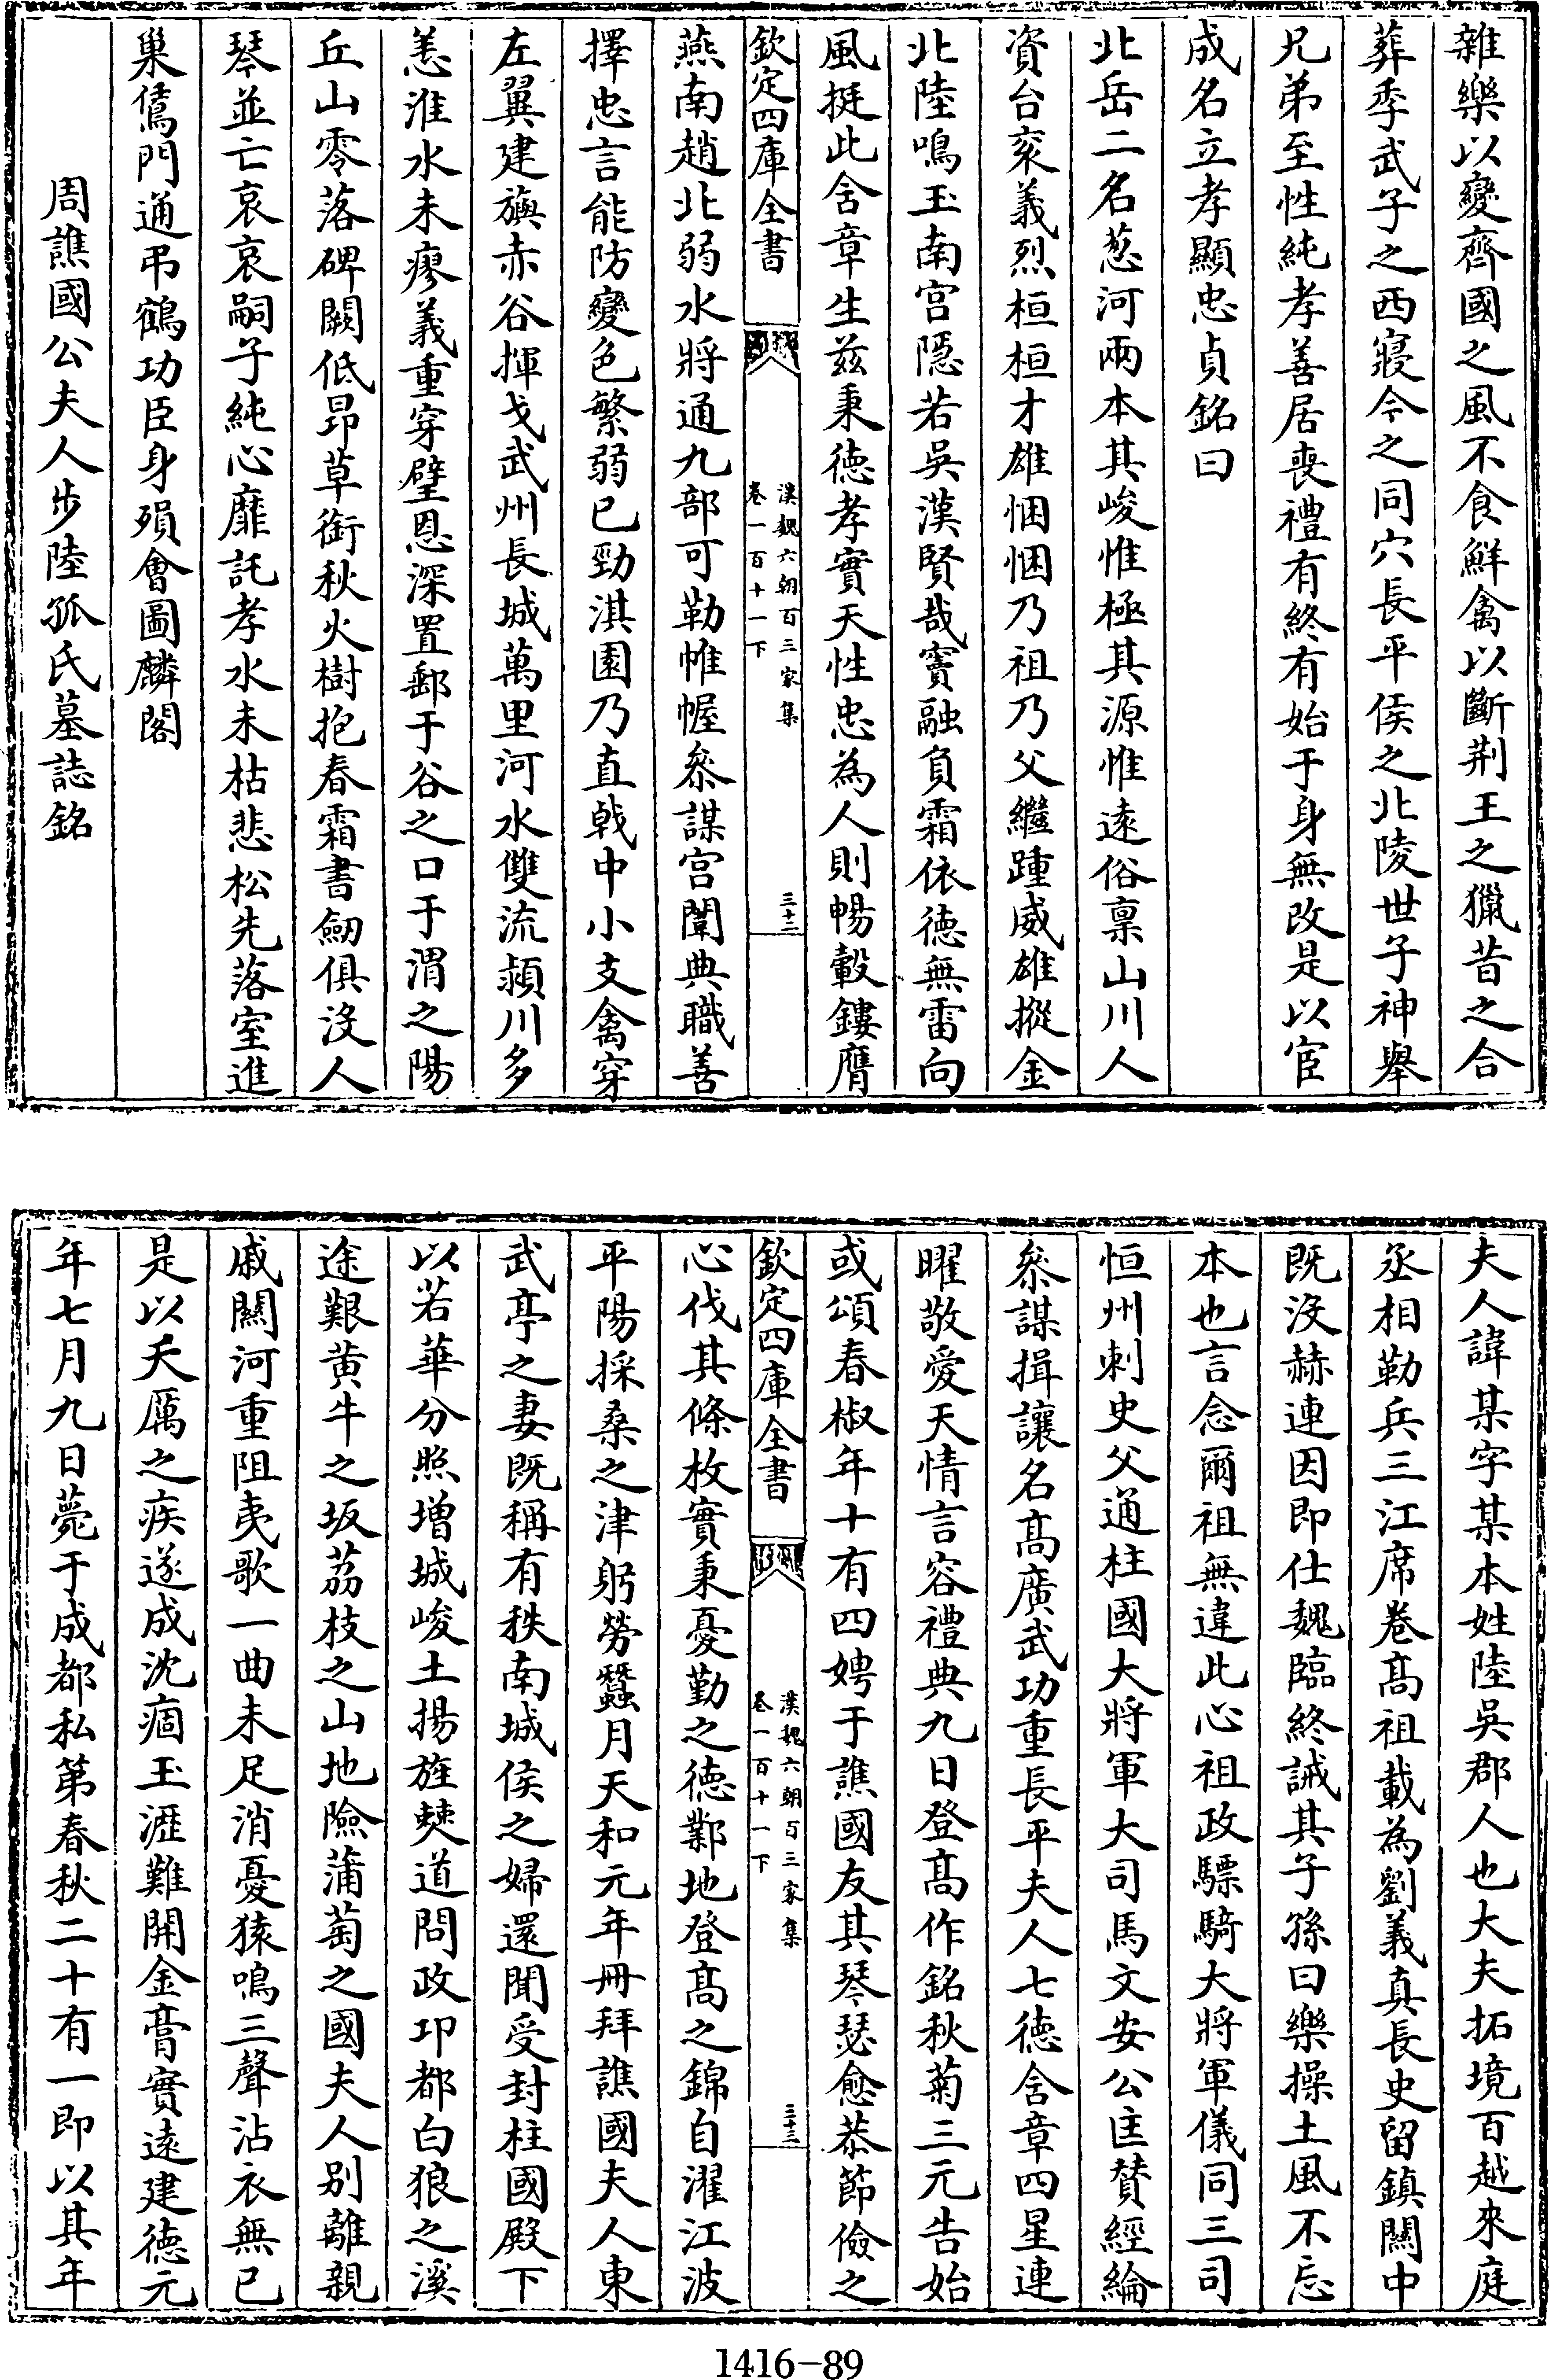 雜樂以變齊國之風不食鮮禽以斷荆王之獵昔之合
葬季武子之西寢今之同穴長平侯之北陵世子神舉
兄弟至性純孝善居喪禮有終有始于身無改是以宦
成名立孝顯忠貞銘曰
北岳二名葱河兩本其峻惟極其源惟遠俗稟山川人
資台衮義烈桓桓才雄悃悃乃祖乃父繼踵威雄摐金
北陸鳴玉南宮隱若吳漢賢哉竇融負霜依德無雷向
風挺此含章生兹秉德孝實天性忠為人則暢轂鏤膺
欽定四庫全書
漢魏六朝百三家集
卷一百十一下
三十二
燕南趙北弱水將通九部可勒帷幄叅謀宮闈典職善
擇忠言能防變色繁弱已勁淇園乃直戟中小支禽穿
左翼建旟赤谷揮戈武州長城萬里河水雙流潁川多
恙淮水未瘳義重穿壁恩深置郵于谷之口于渭之陽
丘山零落碑闕低昂草銜秋火樹抱春霜書劒俱沒人
琴並亡哀哀嗣子純心靡託孝水未枯悲松先落室進
巢鳥門通弔鶴功臣身殞會圖麟閣
周譙國公夫人步陸孤氏墓誌銘
夫人諱某字某本姓陸吳郡人也大夫拓境百越來庭
丞相勒兵三江席卷高祖載為劉義真長史留鎮關中
既沒赫連因即仕魏臨終誡其子孫曰樂操土風不忘
本也言念爾祖無違此心祖政驃騎大將軍儀同三司
恒州刺史父通柱國大將軍大司馬文安公匡贊經綸
叅謀揖讓名髙廣武功重長平夫人七德含章四星連
曜敬愛天情言容禮典九日登髙作銘秋菊三元告始
或頌春椒年十有四娉于譙國友其琴瑟愈恭節儉之
欽定四庫全書
漢魏六朝百三家集
卷一百十一下
三十三
心伐其條枚實秉憂勤之德鄴地登髙之錦自濯江波
平陽採桑之津躬勞蠶月天和元年冊拜譙國夫人東
武亭之妻既稱有秩南城侯之婦還聞受封柱國殿下
以若華分照増城峻土揚旌僰道問政卭都白狼之溪
途艱黄牛之坂荔枝之山地險蒲萄之國夫人別離親
戚關河重阻夷歌一曲未足消憂猿鳴三聲沾衣無已
是以夭厲之疾遂成沈痼玉瀝難開金膏實遠建德元
年七月九日薨于成都私第春秋二十有一即以其年
1416-89